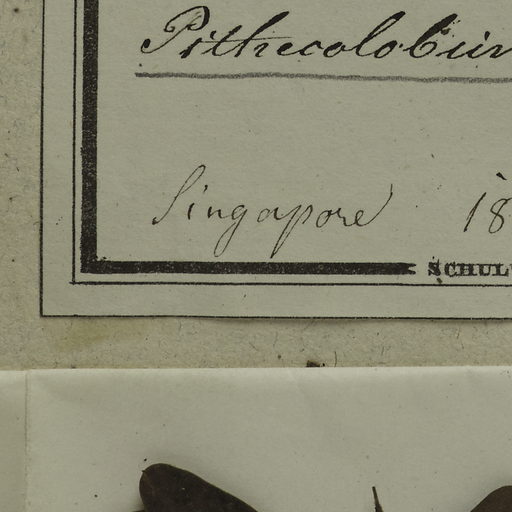 Pithecolobium
Singapore 18
SCHUL